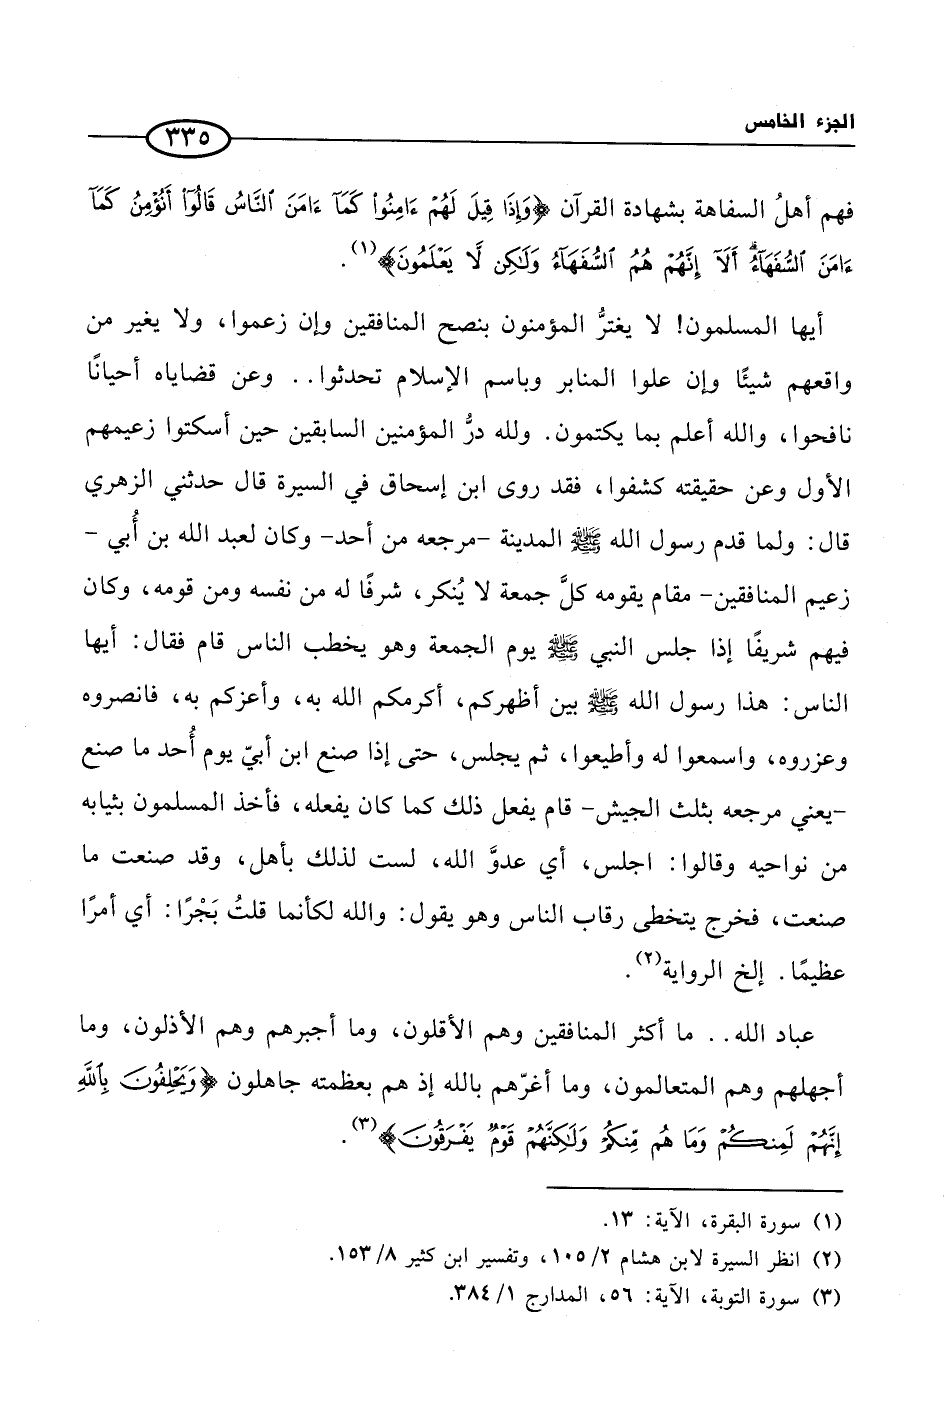 الجزء الخامس
٣٣٥
فهم أهلُ السفاهة بشهادة القرآن ﴿وَإِذَا قِيلَ لَهُمْ ءَامِنُوا۟ كَمَآ ءَامَنَ ٱلنَّاسُ قَالُوٓا۟ أَنُؤْمِنُ كَمَآ
ءَامَنَ ٱلسُّفَهَآءُ ۗ أَلَآ إِنَّهُمْ هُمُ ٱلسُّفَهَآءُ وَلَٰكِن لَّا يَعْلَمُونَ﴾(١).
أيها المسلمون! لا يغترُّ المؤمنون بنصح المنافقين وإن زعموا، ولا يغير من
واقعهم شيئًا وإن علوا المنابر وباسم الإسلام تحدثوا.. وعن قضاياه أحيانًا
نافحوا، والله أعلم بما يكتمون. ولله درُّ المؤمنين السابقين حين أسكتوا زعيمهم
الأول وعن حقيقته كشفوا، فقد روى ابن إسحاق في السيرة قال حدثني الزهري
قال: ولما قدم رسول الله ﷺ المدينة -مرجعه من أحد- وكان لعبد الله بن أُبي -
زعيم المنافقين- مقام يقومه كلَّ جمعة لا يُنكر، شرفًا له من نفسه ومن قومه، وكان
فيهم شريفًا إذا جلس النبي ﷺ يوم الجمعة وهو يخطب الناس قام فقال: أيها
الناس: هذا رسول الله ﷺ بين أظهركم، أكرمكم الله به، وأعزكم به، فانصروه
وعزروه، واسمعوا له وأطيعوا، ثم يجلس، حتى إذا صنع ابن أبيّ يوم أُحد ما صنع
-يعني مرجعه بثلث الجيش- قام يفعل ذلك كما كان يفعله، فأخذ المسلمون بثيابه
من نواحيه وقالوا: اجلس، أي عدوَّ الله، لست لذلك بأهل، وقد صنعت ما
صنعت، فخرج يتخطى رقاب الناس وهو يقول: والله لكأنما قلتُ بَجْرًا: أي أمرًا
عظيمًا. إلخ الرواية(٢).
عباد الله.. ما أكثر المنافقين وهم الأقلون، وما أجبرهم وهم الأذلون، وما
أجهلهم وهم المتعالمون، وما أغرّهم بالله إذ هم بعظمته جاهلون ﴿وَيَحْلِفُونَ بِٱللَّهِ
إِنَّهُمْ لَمِنكُمْ وَمَا هُم مِّنكُمْ وَلَٰكِنَّهُمْ قَوْمٌ يَفْرَقُونَ﴾(٣).
(١) سورة البقرة، الآية: ١٣.
(٢) انظر السيرة لابن هشام ٢/ ١٠٥، وتفسير ابن كثير ٨/ ١٥٣.
(٣) سورة التوبة، الآية: ٥٦، المدارج ١/ ٣٨٤.